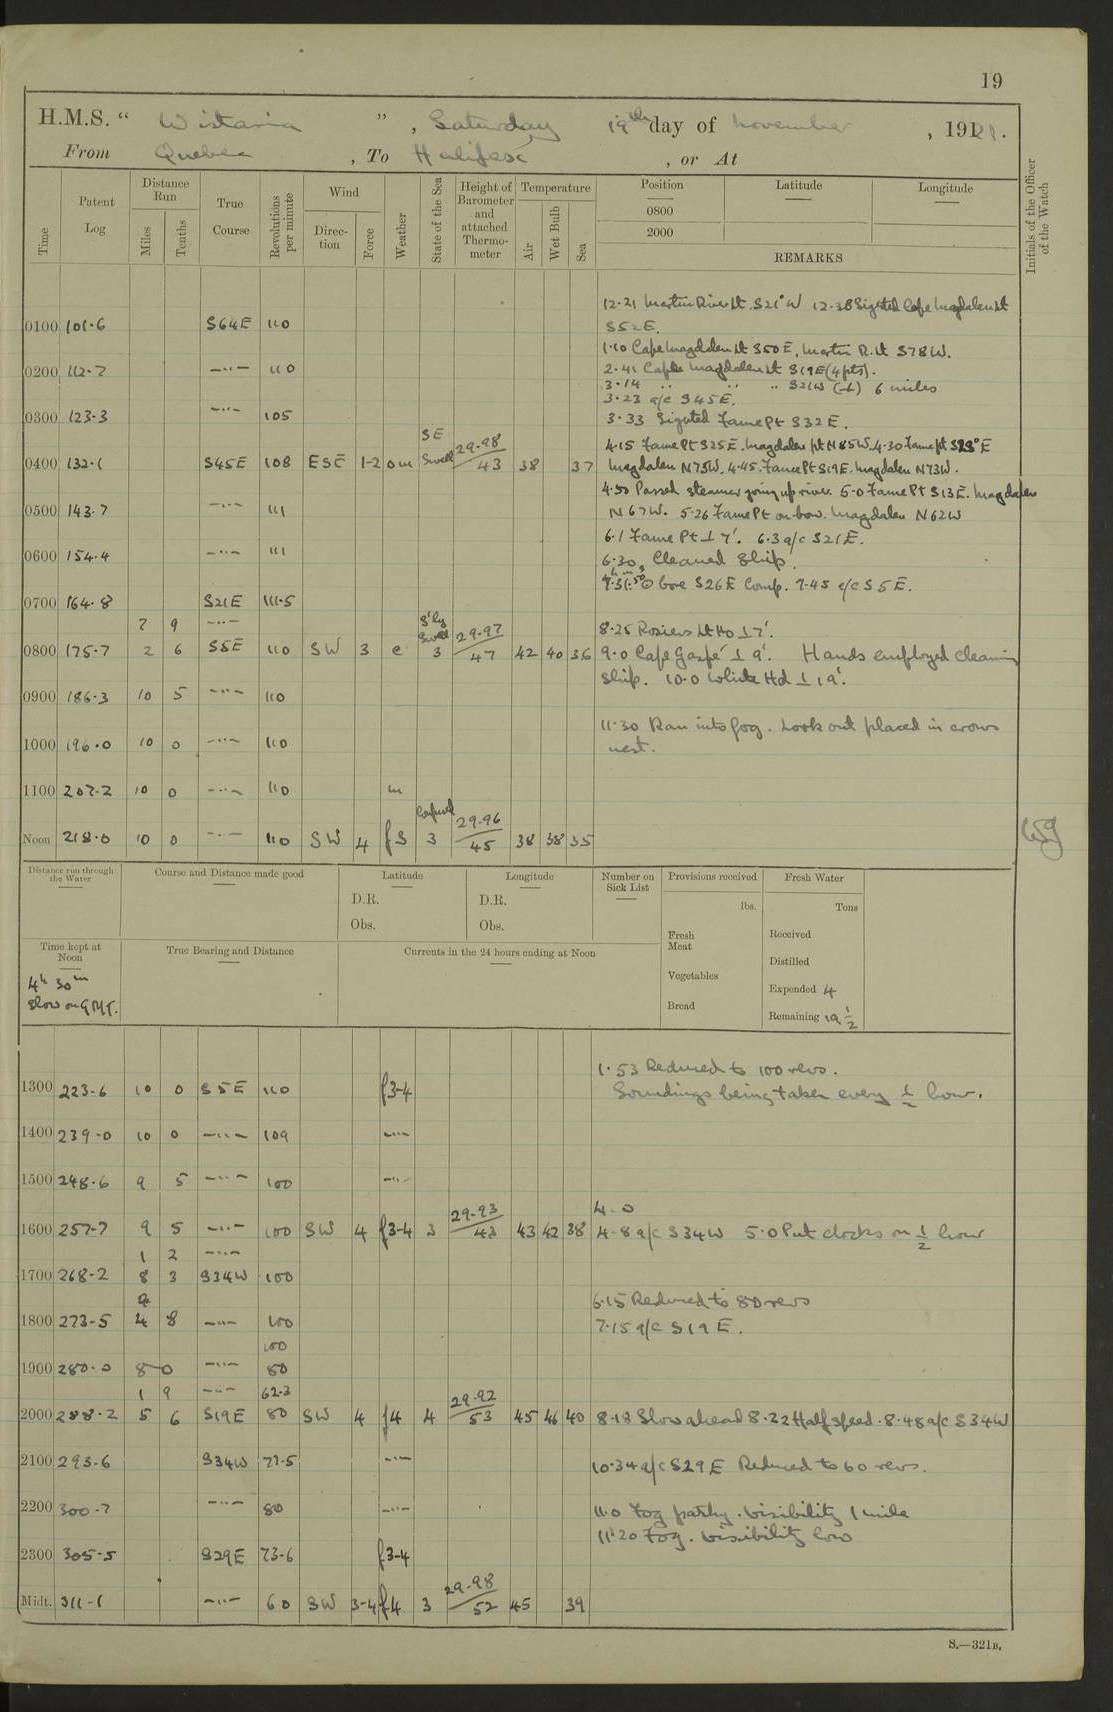 19
H.M.S. " Wistaria ", Saturday 19th day of November, 1921.
From Quebec, To Halifax, or At
Time
Patent Log
Distance Run
Miles
Tenths
True Course
Revolutions per minute
Wind
Direction
Force
Weather
State of the Sea
Height of Barometer and attached Thermometer
Temperature
Air
Wet Bulb
Sea
Position
Latitude
Longitude
0800
2000
REMARKS
Initials of the Officer of the Watch
12.21 Martin River Lt. S21°W 12.38 Sighted Cape Magdalen Lt
0100 101.6 S64E 110 S52E.
1.10 Cape Magdalen Lt S50E, Martin R. Lt S78W.
0200 112.7 —"— 110 2.41 Cape Magdalen Lt S19E (4pts).
3.14 " " " S21W (⊥) 6 miles
3.23 a/c S45E.
0300 123.3 —"— 105 3.33 Sighted Fame Pt S32E.
SE Swell
4.15 Fame Pt S25E. Magdalen pt N85W. 4.30 Fame pt S23°E
0400 132.1 S45E 108 ESE 1-2 om 29.98/43 38 37 Magdalen N75W. 4.45. Fame Pt S19E. Magdalen N73W.
4.50 Passed steamer going up river. 5.0 Fame Pt S13E. Magdalen
0500 143.7 —"— 111 N67W. 5.26 Fame Pt on bow. Magdalen N62W
6.1 Fame Pt ⊥ 7'. 6.3 a/c S21E.
0600 154.4 —"— 111 6.30, Cleaned Ship.
7.31.50 ⊙ bore S26E Comp. 7.45 a/c S5E.
0700 164.8 S21E 111.5
7 9 —"— S'ly Swell
8.25 Rosiers Lt Ho ⊥ 7'.
0800 175.7 2 6 S5E 110 SW 3 c 3 29.97/47 42 40 36 9.0 Cape Gaspé ⊥ 9'. Hands employed cleaning
ship. 10.0 White Hd ⊥ 19'.
0900 186.3 10 5 —"— 110
11.30 Ran into fog. Look out placed in crows
1000 196.0 10 0 —"— 110 nest.
1100 207.2 10 0 —"— 110 m
Confused
Noon 218.0 10 0 —"— 110 SW 4 f5 3 29.96/45 38 38 35
Distance run through the Water
Course and Distance made good
Latitude
D.R.
Obs.
Longitude
D.R.
Obs.
Number on Sick List
Provisions received
lbs.
Fresh Meat
Vegetables
Bread
Fresh Water
Tons
Received
Distilled
Expended 4
Remaining 19 1/2
Time kept at Noon
4h 30m
Slow on GMT.
True Bearing and Distance
Currents in the 24 hours ending at Noon
1.53 Reduced to 100 revs.
1300 223.6 10 0 S5E 110 f3-4 Soundings being taken every 1/2 hour.
1400 239.0 10 0 —"— 109 —"—
1500 248.6 9 5 —"— 100 —"—
4.0
1600 257.7 9 5 —"— 100 SW 4 f3-4 3 29.93/43 43 42 38 4.8 a/c S34W 5.0 Put clocks on 1/2 hour
1 2 —"—
1700 268.2 8 3 S34W 100
6.15 Reduced to 80 revs
1800 273.5 4 8 —"— 100 7.15 a/c S19E.
100
1900 280.0 8 0 —"— 80
1 9 —"— 62.3
2000 288.2 5 6 S19E 80 SW 4 f4 4 29.92/53 45 46 40 8.18 Slow ahead 8.22 Half speed. 8.48 a/c S34W
2100 293.6 S34W 77.5 —"— 10.34 a/c S29E Reduced to 60 revs.
2200 300.7 —"— 80 —"— 11.0 Fog patchy. Visibility 1 mile
11.20 Fog. Visibility low
2300 305.5 S29E 73.6 f3-4
Midt. 311.1 —"— 60 SW 3-4 f4 3 29.98/52 45 39
S.—321B.